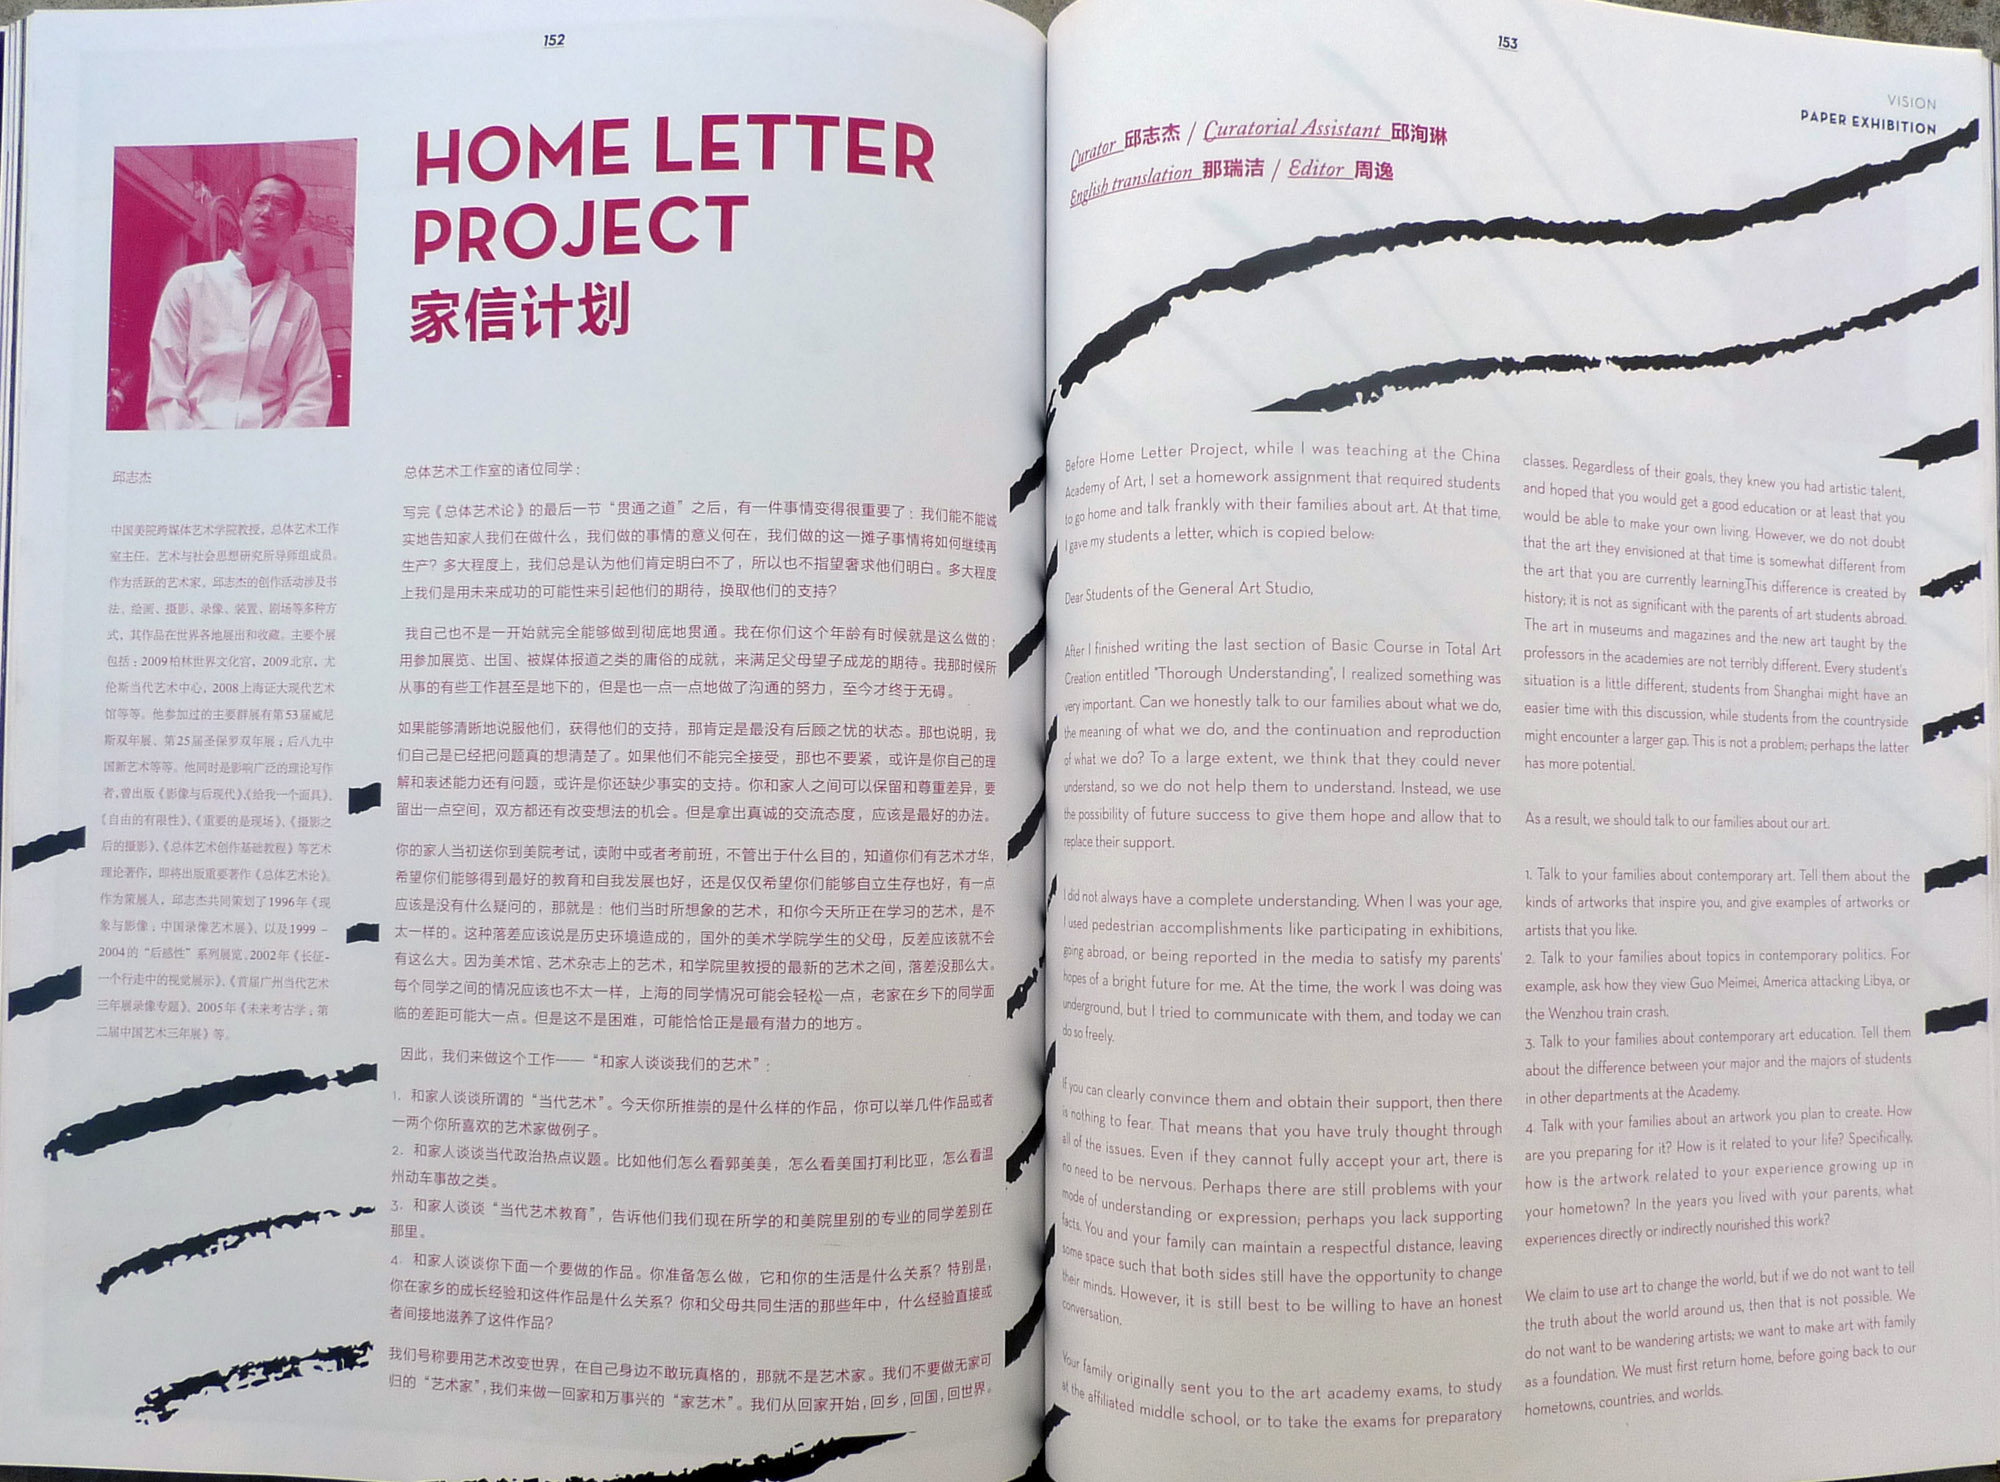 152
HOME LETTER
PROJECT
家信计划
邱志杰
中国美院跨媒体艺术学院教授，总体艺术工作
室主任，艺术与社会思想研究所导师组成员。
作为活跃的艺术家，邱志杰的创作活动涉及书
法、绘画、摄影、录像、装置、剧场等多种方
式，其作品在世界各地展出和收藏。主要个展
包括：2009柏林世界文化宫，2009北京，尤
伦斯当代艺术中心，2008上海证大现代艺术
馆等等。他参加过的主要群展有第53届威尼
斯双年展、第25届圣保罗双年展；后八九中
国新艺术等等。他同时是影响广泛的理论写作
者，曾出版《影像与后现代》、《给我一个面具》、
《自由的有限性》、《重要的是现场》、《摄影之
后的摄影》、《总体艺术创作基础教程》等艺术
理论著作，即将出版重要著作《总体艺术论》。
作为策展人，邱志杰共同策划了1996年《现
象与影像：中国录像艺术展》，以及1999－
2004的“后感性”系列展览，2002年《长征-
一个行走中的视觉展示》、《首届广州当代艺术
三年展录像专题》、2005年《未来考古学：第
二届中国艺术三年展》等。
总体艺术工作室的诸位同学：
写完《总体艺术论》的最后一节“贯通之道”之后，有一件事情变得很重要了：我们能不能诚
实地告知家人我们在做什么，我们做的事情的意义何在，我们做的这一摊子事情将如何继续再
生产？多大程度上，我们总是认为他们肯定明白不了，所以也不指望奢求他们明白。多大程度
上我们是用未来成功的可能性来引起他们的期待，换取他们的支持？
我自己也不是一开始就完全能够做到彻底地贯通。我在你们这个年龄有时候就是这么做的：
用参加展览、出国、被媒体报道之类的庸俗的成就，来满足父母望子成龙的期待。我那时候所
从事的有些工作甚至是地下的，但是也一点一点地做了沟通的努力，至今才终于无碍。
如果能够清晰地说服他们，获得他们的支持，那肯定是最没有后顾之忧的状态。那也说明，我
们自己是已经把问题真的想清楚了。如果他们不能完全接受，那也不要紧，或许是你自己的理
解和表述能力还有问题，或许是你还缺少事实的支持。你和家人之间可以保留和尊重差异，要
留出一点空间，双方都还有改变想法的机会。但是拿出真诚的交流态度，应该是最好的办法。
你的家人当初送你到美院考试，读附中或者考前班，不管出于什么目的，知道你们有艺术才华，
希望你们能够得到最好的教育和自我发展也好，还是仅仅希望你们能够自立生存也好，有一点
应该是没有什么疑问的，那就是：他们当时所想象的艺术，和你今天所正在学习的艺术，是不
太一样的。这种落差应该说是历史环境造成的，国外的美术学院学生的父母，反差应该就不会
有这么大。因为美术馆、艺术杂志上的艺术，和学院里教授的最新的艺术之间，落差没那么大。
每个同学之间的情况应该也不太一样，上海的同学情况可能会轻松一点，老家在乡下的同学面
临的差距可能大一点。但是这不是困难，可能恰恰正是最有潜力的地方。
因此，我们来做这个工作——“和家人谈谈我们的艺术”：
1. 和家人谈谈所谓的“当代艺术”。今天你所推崇的是什么样的作品，你可以举几件作品或者
一两个你所喜欢的艺术家做例子。
2. 和家人谈谈当代政治热点议题。比如他们怎么看郭美美，怎么看美国打利比亚，怎么看温
州动车事故之类。
3. 和家人谈谈“当代艺术教育”，告诉他们我们现在所学的和美院里别的专业的同学差别在
那里。
4. 和家人谈谈你下面一个要做的作品。你准备怎么做，它和你的生活是什么关系？特别是，
你在家乡的成长经验和这件作品是什么关系？你和父母共同生活的那些年中，什么经验直接或
者间接地滋养了这件作品？
我们号称要用艺术改变世界，在自己身边不敢玩真格的，那就不是艺术家。我们不要做无家可
归的“艺术家”，我们来做一回家和万事兴的“家艺术”。我们从回家开始，回乡，回国，回世界。
153
VISION
PAPER EXHIBITION
Curator 邱志杰 / Curatorial Assistant 邱洵琳
English translation 那瑞洁 / Editor 周逸
Before Home Letter Project, while I was teaching at the China
Academy of Art, I set a homework assignment that required students
to go home and talk frankly with their families about art. At that time,
I gave my students a letter, which is copied below:
Dear Students of the General Art Studio,
After I finished writing the last section of Basic Course in Total Art
Creation entitled "Thorough Understanding", I realized something was
very important. Can we honestly talk to our families about what we do,
the meaning of what we do, and the continuation and reproduction
of what we do? To a large extent, we think that they could never
understand, so we do not help them to understand. Instead, we use
the possibility of future success to give them hope and allow that to
replace their support.
I did not always have a complete understanding. When I was your age,
I used pedestrian accomplishments like participating in exhibitions,
going abroad, or being reported in the media to satisfy my parents'
hopes of a bright future for me. At the time, the work I was doing was
underground, but I tried to communicate with them, and today we can
do so freely.
If you can clearly convince them and obtain their support, then there
is nothing to fear. That means that you have truly thought through
all of the issues. Even if they cannot fully accept your art, there is
no need to be nervous. Perhaps there are still problems with your
mode of understanding or expression; perhaps you lack supporting
facts. You and your family can maintain a respectful distance, leaving
some space such that both sides still have the opportunity to change
their minds. However, it is still best to be willing to have an honest
conversation.
Your family originally sent you to the art academy exams, to study
at the affiliated middle school, or to take the exams for preparatory
classes. Regardless of their goals, they knew you had artistic talent,
and hoped that you would get a good education or at least that you
would be able to make your own living. However, we do not doubt
that the art they envisioned at that time is somewhat different from
the art that you are currently learning.This difference is created by
history; it is not as significant with the parents of art students abroad.
The art in museums and magazines and the new art taught by the
professors in the academies are not terribly different. Every student's
situation is a little different; students from Shanghai might have an
easier time with this discussion, while students from the countryside
might encounter a larger gap. This is not a problem; perhaps the latter
has more potential.
As a result, we should talk to our families about our art.
1. Talk to your families about contemporary art. Tell them about the
kinds of artworks that inspire you, and give examples of artworks or
artists that you like.
2. Talk to your families about topics in contemporary politics. For
example, ask how they view Guo Meimei, America attacking Libya, or
the Wenzhou train crash.
3. Talk to your families about contemporary art education. Tell them
about the difference between your major and the majors of students
in other departments at the Academy.
4. Talk with your families about an artwork you plan to create. How
are you preparing for it? How is it related to your life? Specifically,
how is the artwork related to your experience growing up in
your hometown? In the years you lived with your parents, what
experiences directly or indirectly nourished this work?
We claim to use art to change the world, but if we do not want to tell
the truth about the world around us, then that is not possible. We
do not want to be wandering artists; we want to make art with family
as a foundation. We must first return home, before going back to our
hometowns, countries, and worlds.